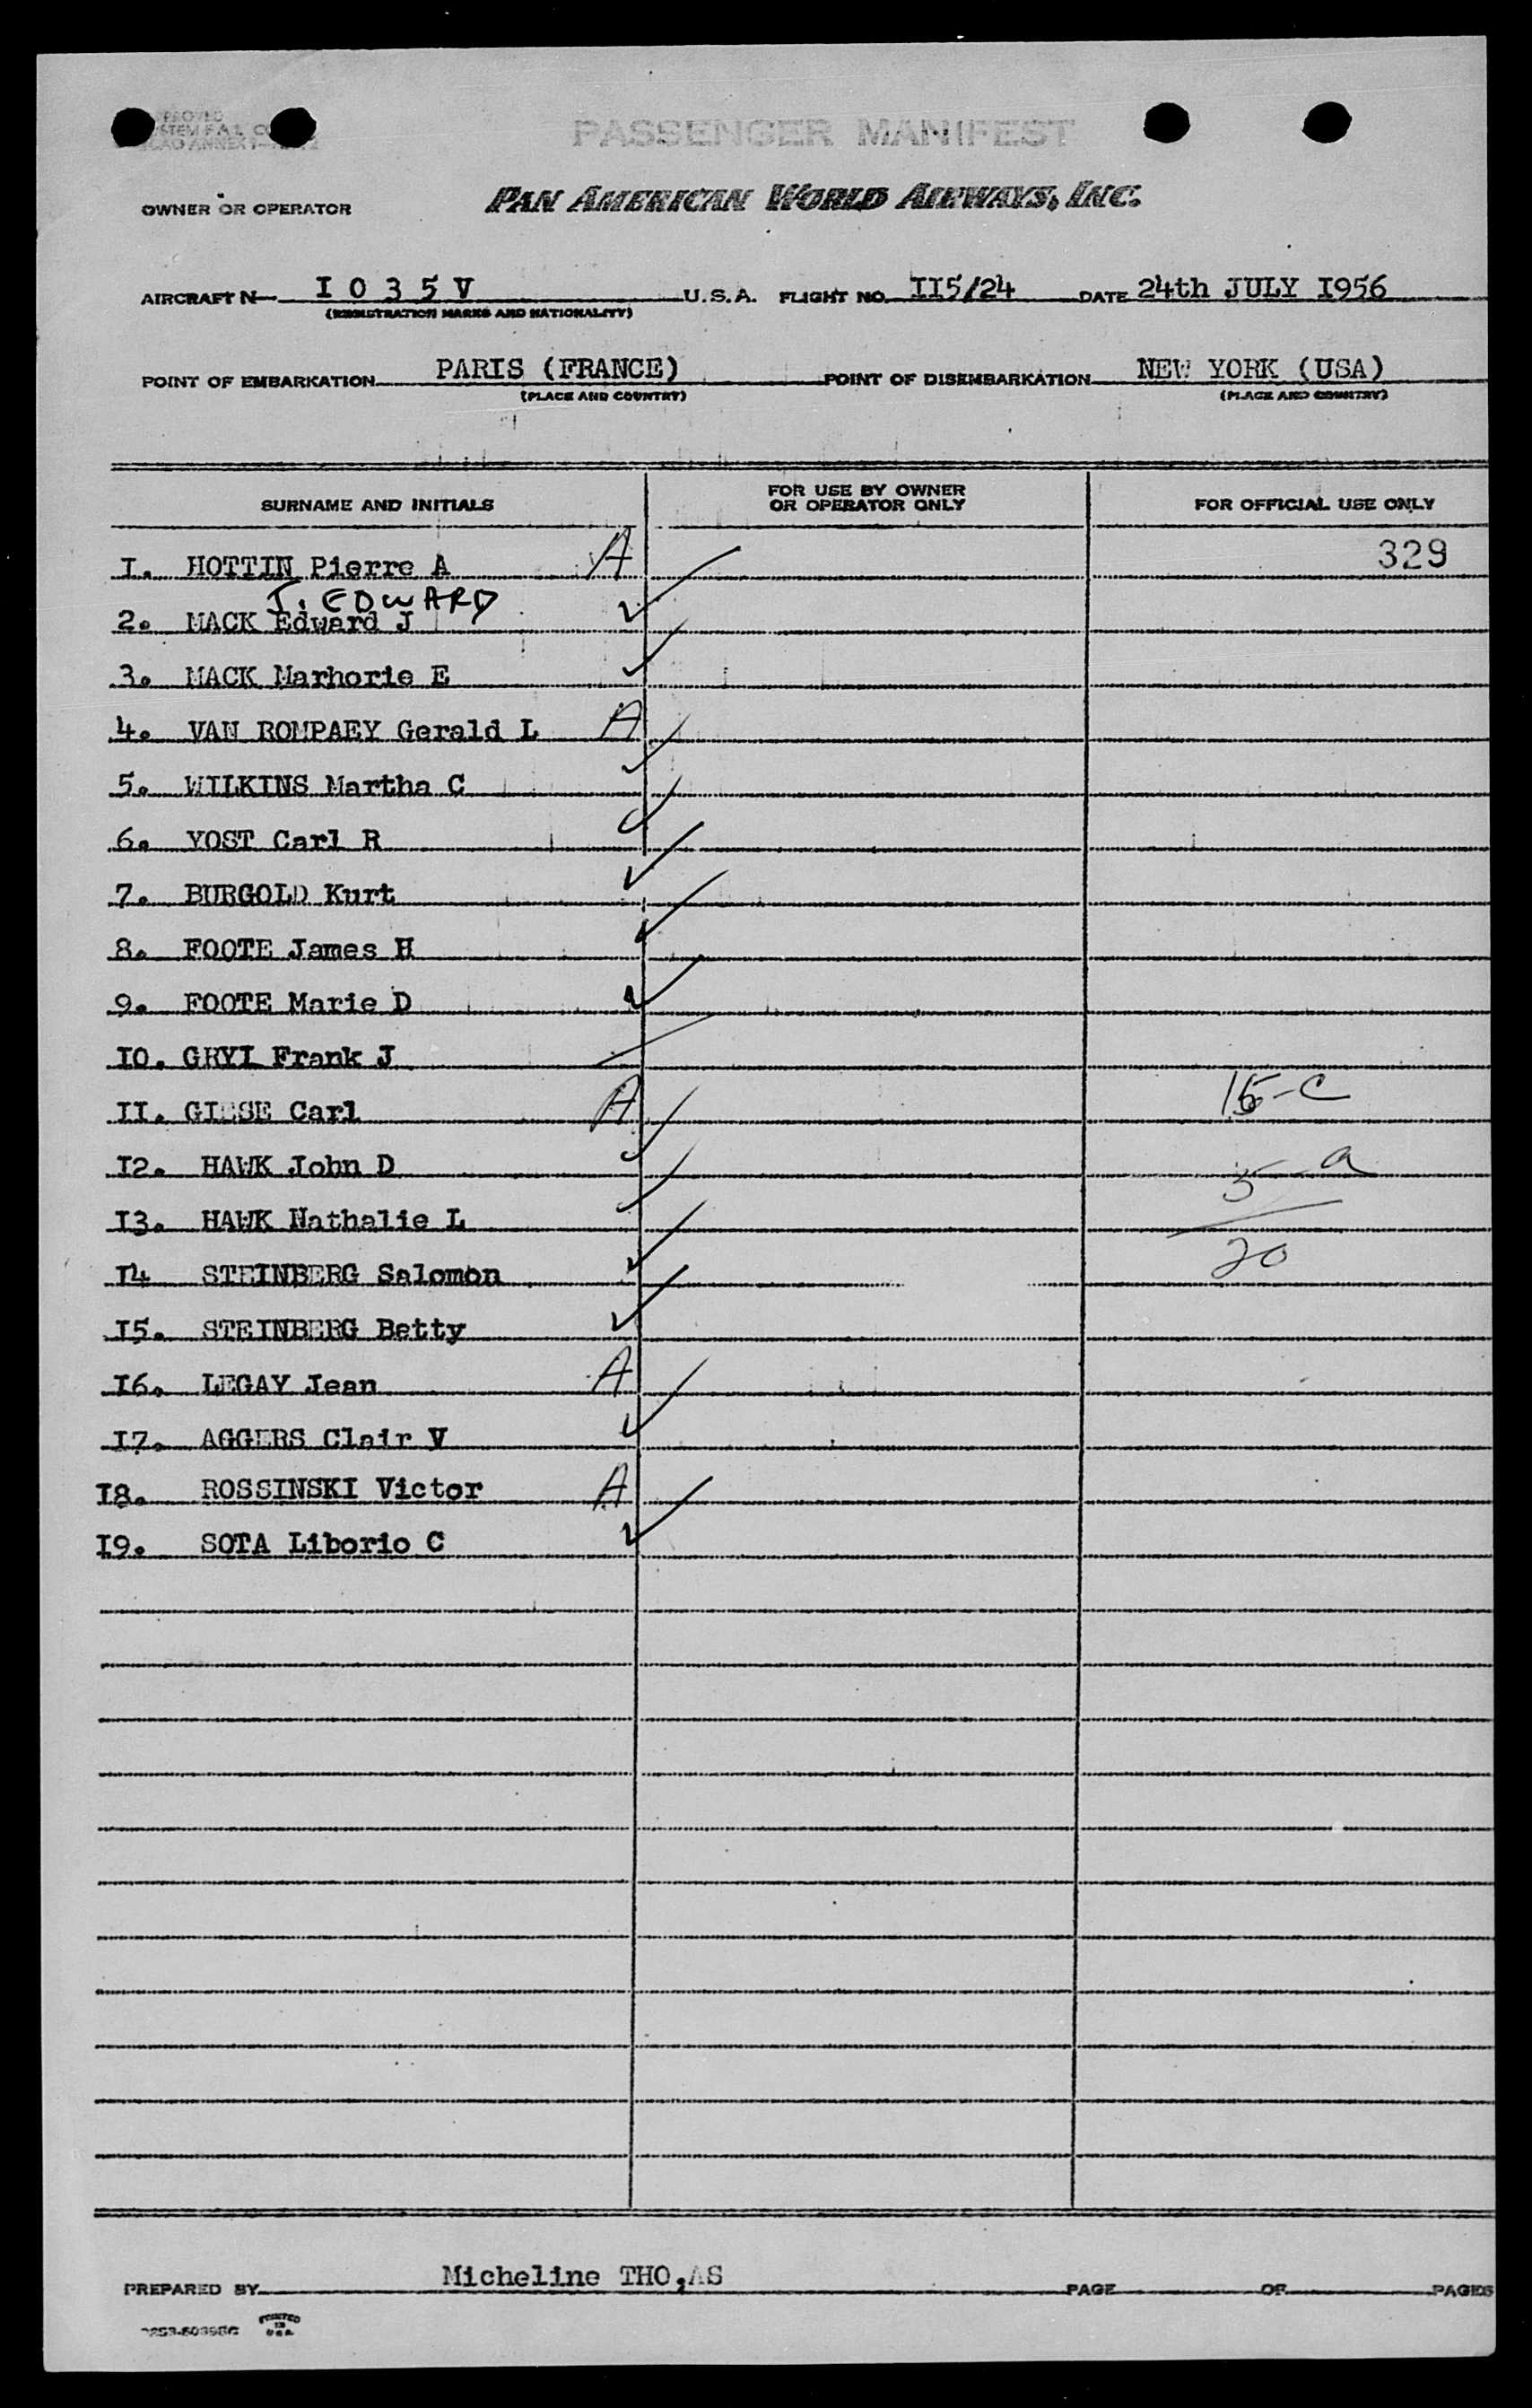 PASSENGER MANIFEST
OWNER OR OPERATOR PAN AMERICAN WORLD AIRWAYS, INC.
AIRCRAFT N I 0 3 5 V U.S.A. FLIGHT NO. II5/24 DATE 24th JULY I956
(REGISTRATION MARKS AND NATIONALITY)
POINT OF EMBARKATION PARIS (FRANCE) POINT OF DISEMBARKATION NEW YORK (USA)
(PLACE AND COUNTRY) (PLACE AND COUNTRY)
SURNAME AND INITIALS FOR USE BY OWNER OR OPERATOR ONLY FOR OFFICIAL USE ONLY
I. HOTTIN Pierre A A 329
J. EDWARD
2. MACK Edward J ✓
3. MACK Marhorie E ✓
4. VAN ROMPAEY Gerald L A
5. WILKINS Martha C ✓
6. YOST Carl R ✓
7. BURGOLD Kurt ✓
8. FOOTE James H ✓
9. FOOTE Marie D ✓
IO. GRYI Frank J
II. GIESE Carl A 15-C
I2. HAWK John D ✓ 5-a
I3. HAWK Nathalie L ✓
I4 STEINBERG Salomon ✓ 20
I5. STEINBERG Betty ✓
I6. LEGAY Jean A
I7. AGGERS Clair V ✓
I8. ROSSINSKI Victor A
I9. SOTA Liborio C ✓
PREPARED BY Micheline THO,AS PAGE OF PAGES
PRINTED IN U.S.A.